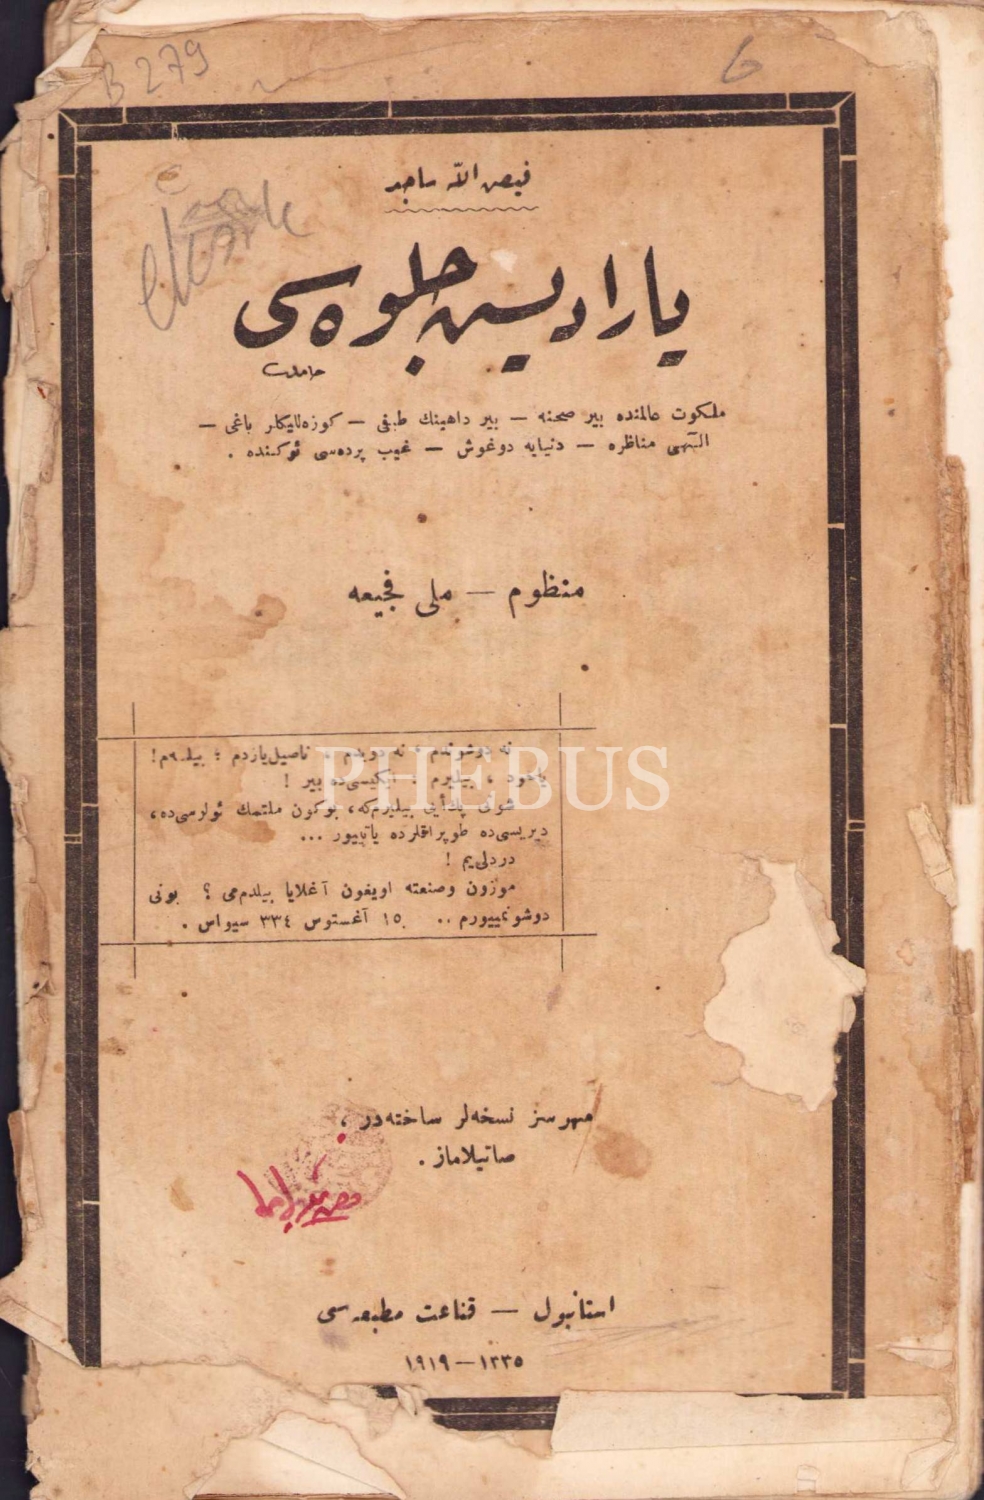 B 279
6
فیض الله ساجد
یارادیسین جلوه‌سی
ملكوت عالمنده بیر صحنه — بیر داهینك طبفی — كوزه‌للیكلر باغی —
الٓهی مناظره — دنیایه دوغوش — غیب پرده‌سی ئوكنده .
منظوم — ملی فجیعه
نه دوشوندم ؛ نه دویدم ، ناصیل یازدم ؛ بیلمه‌م !
یاخود ، بیلیرم . ایكیسی‌ده بیر !
شونی پك‌أیی بیلیرم‌كه، بوكون ملتمك ئولرسی‌ده،
دیریسی‌ده طوپراقلرده یاتییور ...
دردلی‌یم !
موزون وصنعته اویغون آغلایا بیلدم‌می ؟ بونی
دوشونمییورم .. ١٥ آغستوس ٣٣٤ سیواس .
مهرسز نسخه‌لر ساخته‌در ،
صاتیلاماز .
استانبول — قناعت مطبعه‌سی
١٣٣٥—١٩١٩
PHEBUS